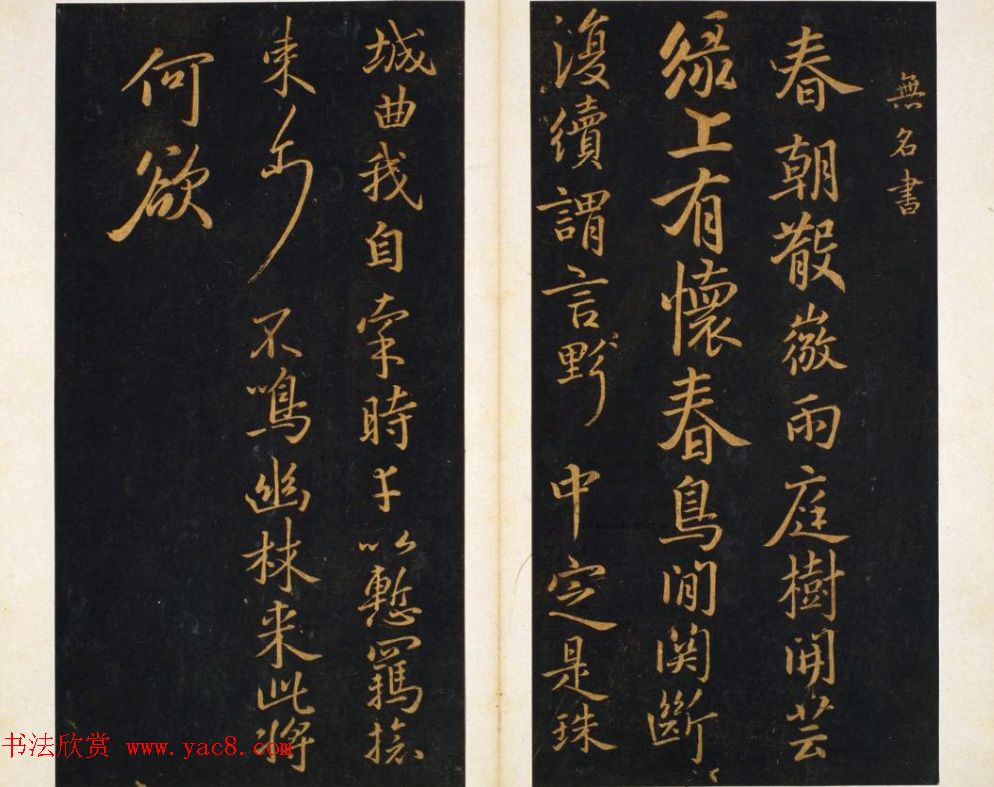 無名書
春朝散微雨庭樹開芸
綠上有懷春鳥間関斷
復續謂言野中定是珠
城曲我自牽時以慙羈
東方不鳴幽林来此將
何欲
书法欣赏 www.yac8.com